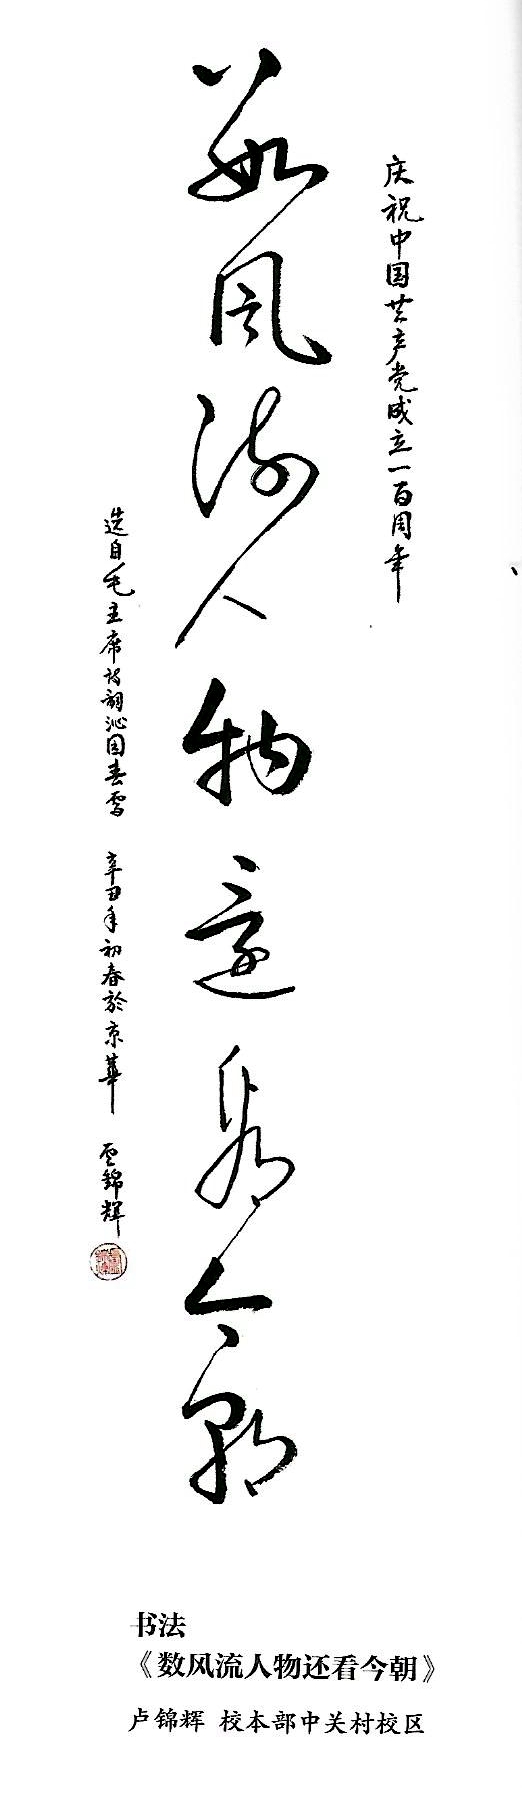 庆祝中国共产党成立一百周年
数风流人物还看今朝
选自毛主席诗词沁园春雪 辛丑年初春於京華 卢錦輝
书法
《数风流人物还看今朝》
卢锦辉 校本部中关村校区